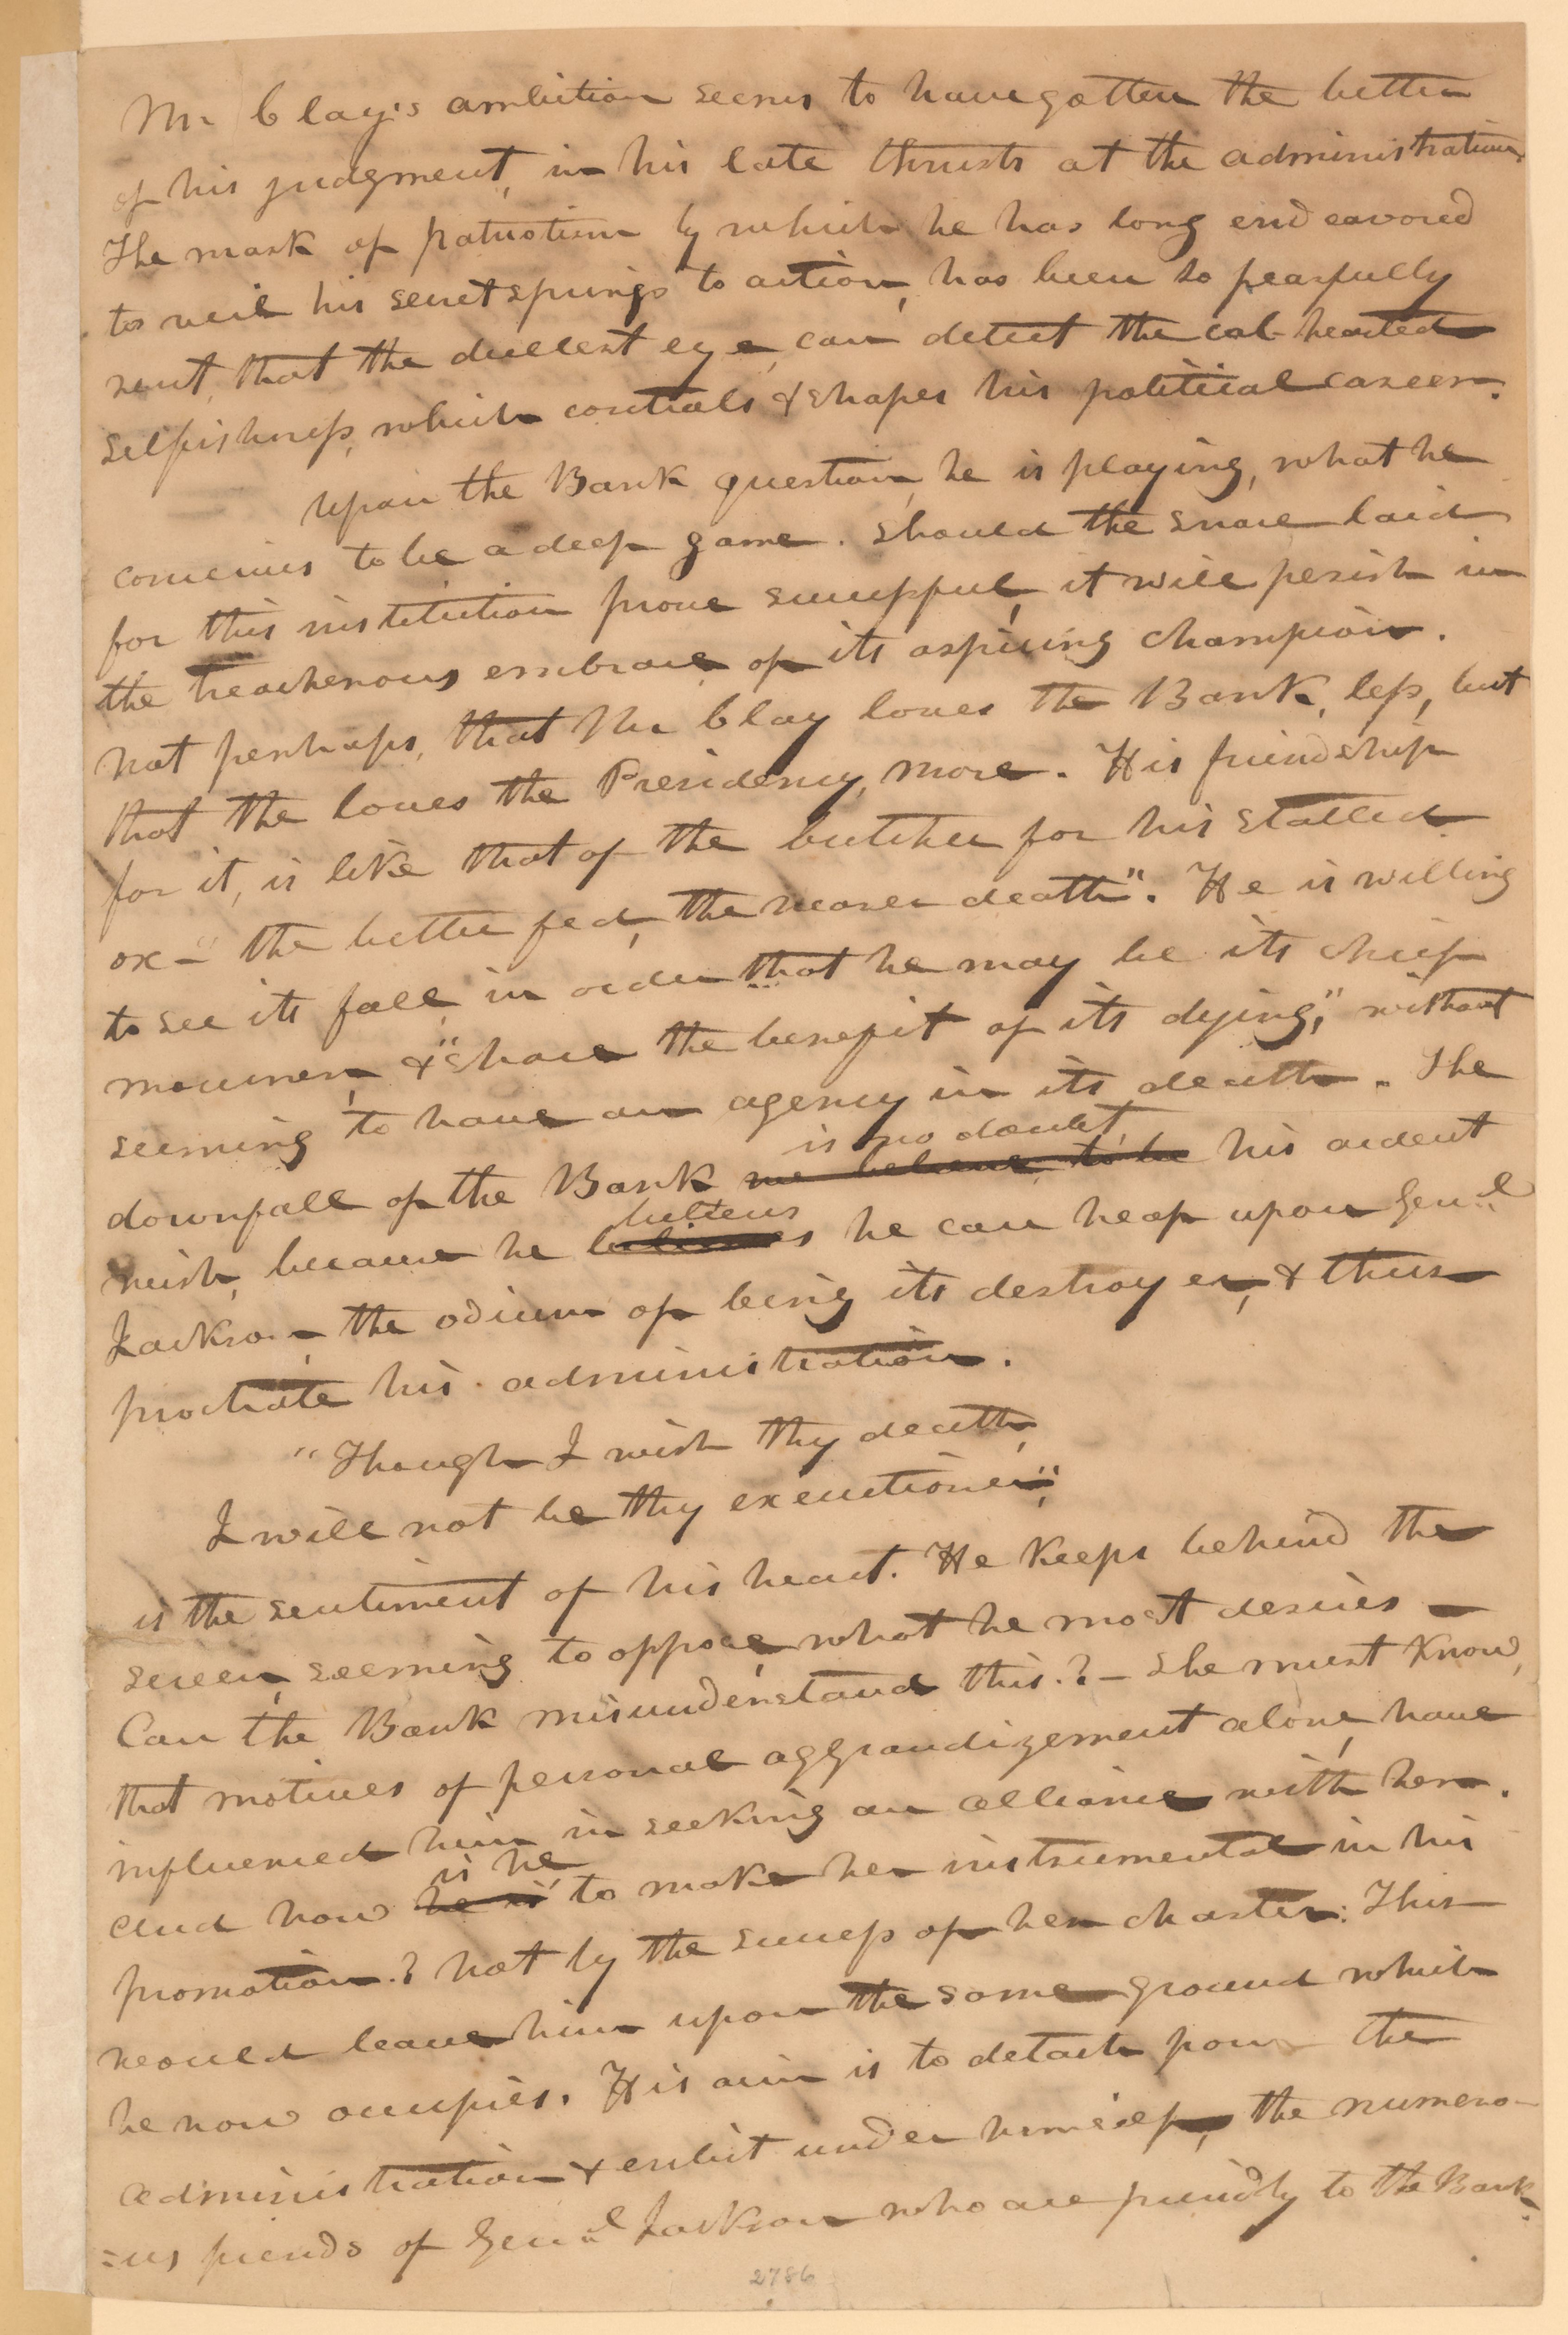 Mr Clay's ambition seems to have gotten the better
of his judgment, in his late thrusts at the administration.
The mask of patriotism by which he has long endeavored
to veil his secret springs to action, has been so fearfully
rent, that the dullest eye, can detect the col-hearted
selfishness, which controls & shapes his political career.
Upon the Bank question, he is playing, what he
conceives to be a deep game. Should the snare laid
for this institution prove successful, it will perish in
the treacherous embrace of its aspiring champion.
Not perhaps, that Mr Clay loves the Bank, less, but
that the loves the Presidency, more. His friendship
for it, is like that of the butcher for his stalled
ox – "the better fed, the nearer death". He is willing
to see its fall, in order that he may be its chief
mourner, & "share the benefit of its dying," without
seeming to have an agency in its death. The
is no doubt,
downfall of the Bank we believe, to be his ardent
betters
wish, because he believes he can heap upon Genl.
Jackson, the odium of being its destroyer, & thus
prostrate his administration.
"Though I wish thy death,
I will not be thy executioner,"
is the sentiment of his heart. He keeps behind the
screen, seeming to oppose, what he most desires –
Can the Bank misunderstand this.? – She must know,
that motives of personal aggrandizement alone, have
influenced him in seeking an alliance with her.
is he
And how he is to make her instrumental in his
promotion.? Not by the success of her charter: This
would leave him upon the same ground which
he now occupies. His aim is to detach from the
administration & enlist under himself, the numero-
=us friends of Genl Jackson who are friendly to the Bank.
2786